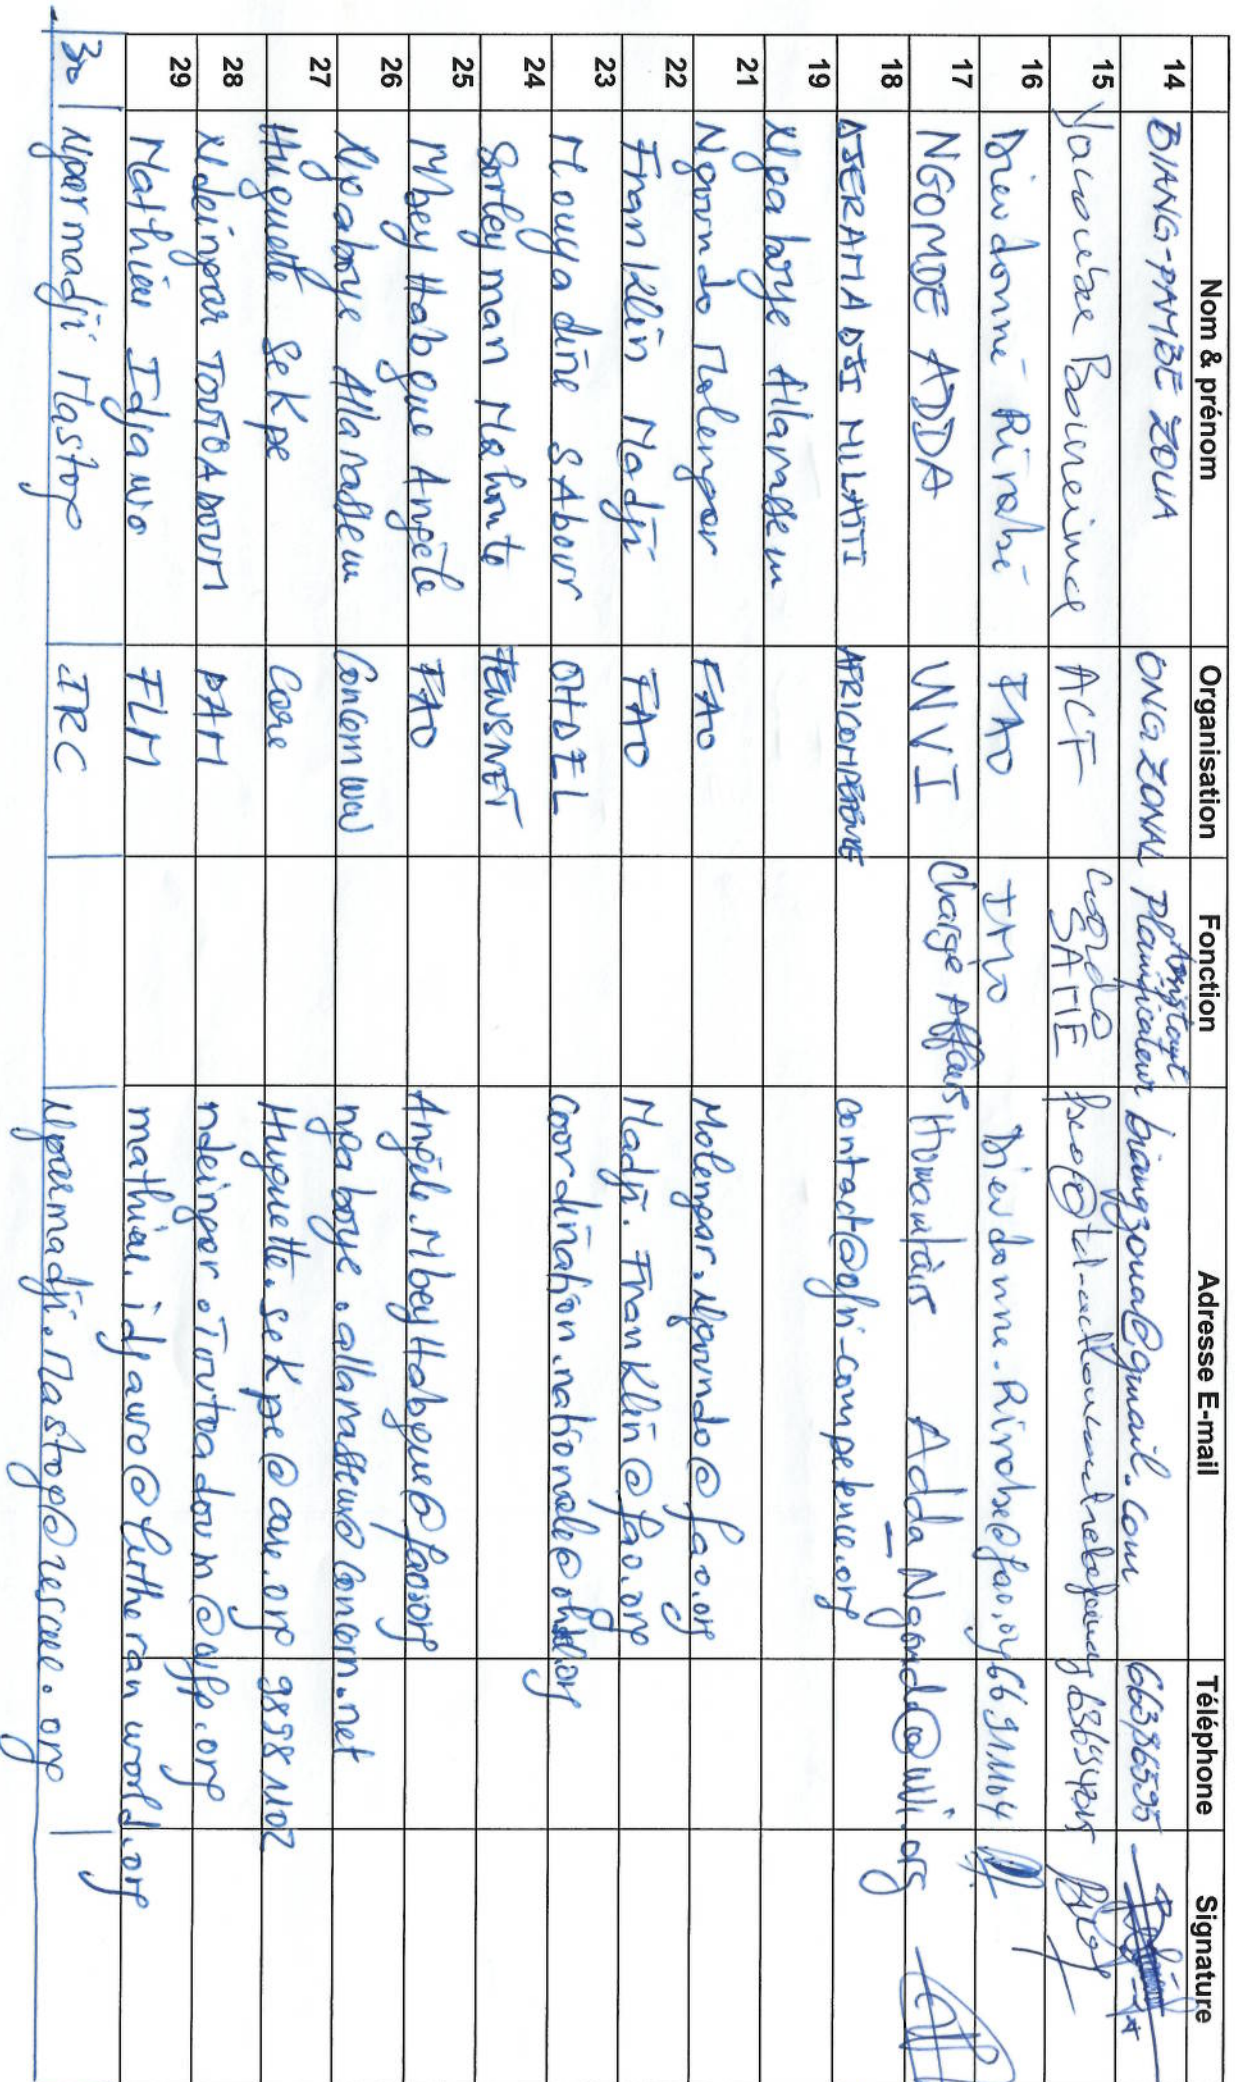 Nom & prénom Organisation Fonction Adresse E-mail Téléphone Signature
14 BIANG-PAMBE ZOUA ONG ZONAL Assistant Planificateur biangzoua@gmail.com 66386595
15 ACF Coordo SAME
16 Dieudonné Rirabé FAO IMO Dieudonne.Rirabe@fao.org 66911104
17 NGOMDE ADDA WVI Chargé Affairs Humanitairs Adda_Ngomde@wvi.org
18 DJERAMADJI MILATTI AFRICOMPETENCE contact@afri-competence.org
19 Ngaboye Allarassem
21 Ngoundo Molengar FAO Molengar.Ngoundo@fao.org
22 Franklin Madji FAO Madji.Franklin@fao.org
23 Mouyadine SAbour OHDEL Coordination.nationale@ohdel.org
24 Souleyman Mahouto FEWSNET
25 MbeyHabgue Angèle FAO Angele.MbeyHabgue@fao.org
26 Ngaboye Allarassem Concern WW ngaboye.allarassem@concern.net
27 Huguette Sekpe Care Huguette.sekpe@care.org 98981102
28 Ndeingar TOUTOADOUM PAM ndeingar.Toutoadoum@wfp.org
29 Mathieu Idjawo FLM mathieu.idjawo@lutheranworld.org
30 Ngarmadji Mastog IRC Ngarmadji.Mastog@rescue.org